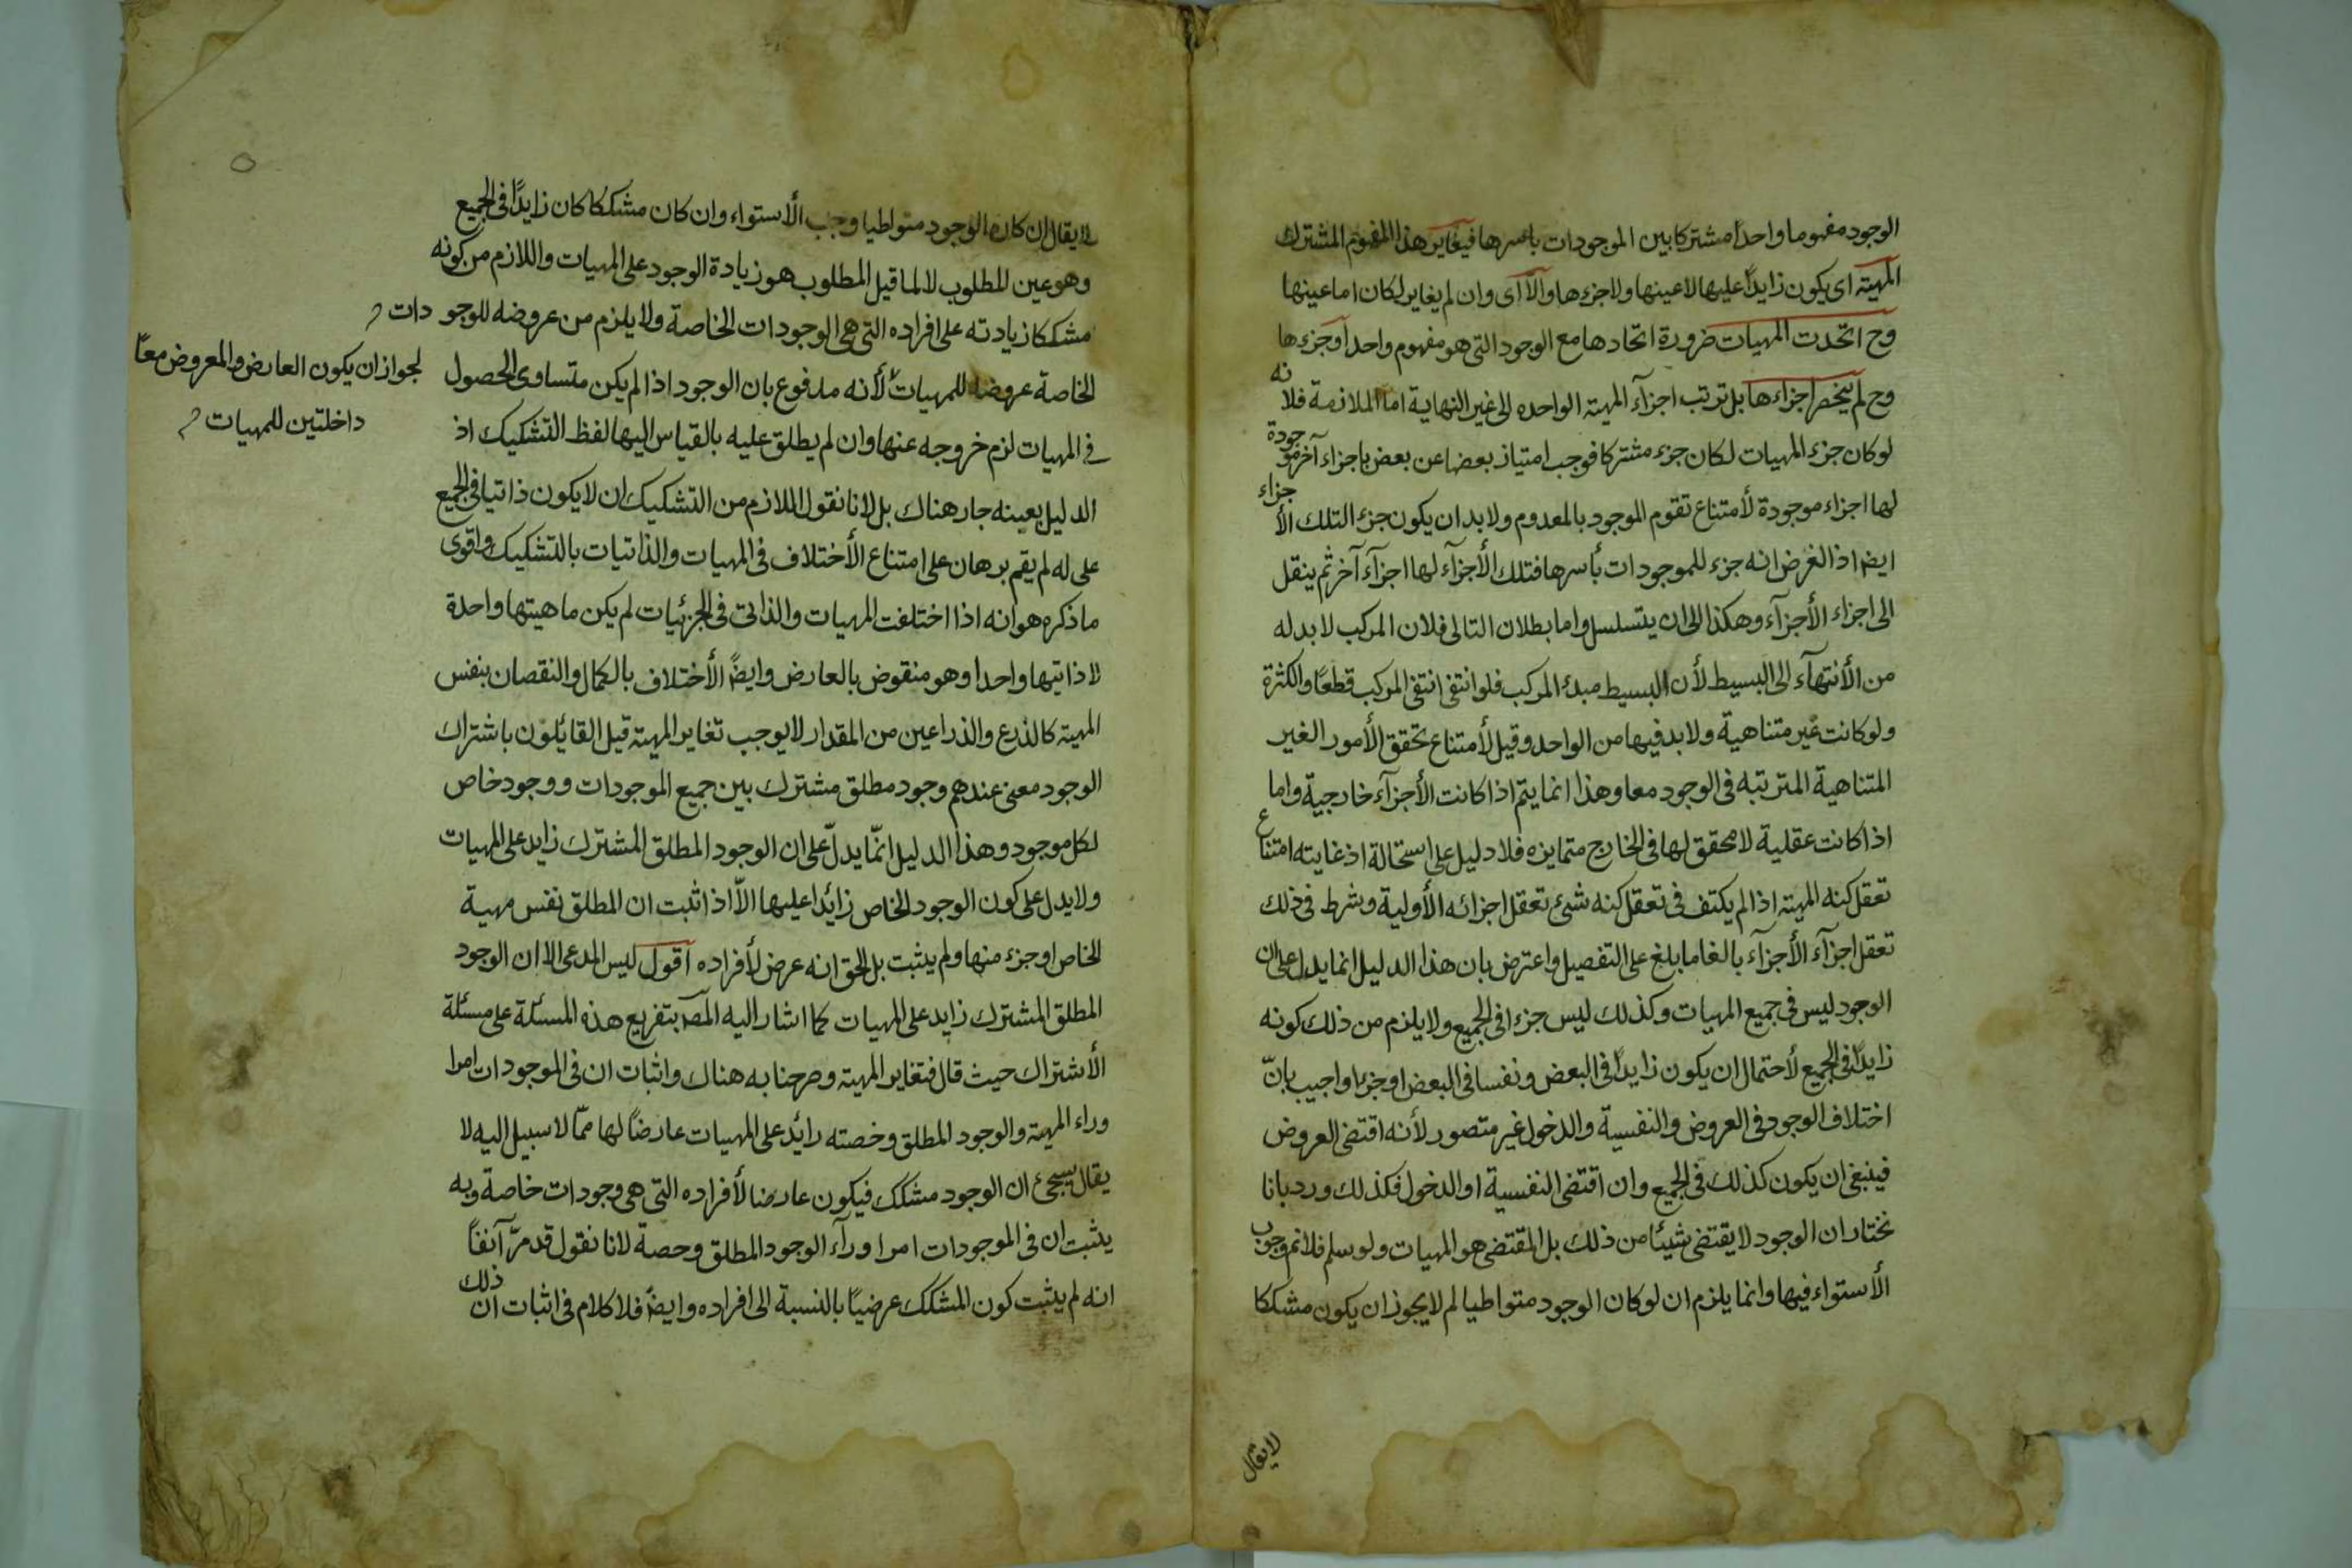 الوجود مفهوما واحدا مشتركا بين الموجودات باسرها فيغاير هذا المفهوم المشترك
المهية اى يكون زايدا عليها لا عينها ولا جزءها والا اى وان لم يغاير لكان اما عينها
وح اتحدت المهيات ضرورة اتحادها مع الوجود التى هو مفهوم واحد او جزءها
وح لم ينحصر اجزاءها بل ترتب اجزآء المهية الواحده الى غير النهاية اما الملازمة فلانه
لو كان جزء المهيات لكان جزء مشتركا فوجب امتياز بعضها عن بعض باجزاء آخر موجودة
لها اجزاء موجودة لأمتناع تقوم الموجود بالمعدوم ولا بد ان يكون جزء التلك الأجزاء
ايضا اذ الغرض انه جزء للموجودات بأسرها فتلك الأجزآء لها اجزآء آخر ثم ينقل
الى اجزاء الأجزآء وهكذا الى ان يتسلسل واما بطلان التالى فلان المركب لا بد له
من الأنتهآء الى البسيط لأن البسيط مبدء المركب فلو انتفى انتفى المركب قطعًا والكثرة
ولو كانت غير متناهية ولا بد فيها من الواحد وقيل لأمتناع تحقق الأمور الغير
المتناهية المترتبه فى الوجود معا وهذا انما يتم اذا كانت الأجزآء خارجية واما
اذا كانت عقلية لا محقق لها فى الخارج متمايزه فلا دليل على استحالة اذ غايته امتناع
تعقل كنه المهية اذا لم يكتف فى تعقل كنه شئ تعقل اجزائه الأولية وشرط فى ذلك
تعقل اجزآء الأجزآء بالغا ما بلغ على التفصيل واعترض بان هذا الدليل انما يدل على ان
الوجود ليس فى جميع المهيات وكذلك ليس جزءا فى الجميع ولا يلزم من ذلك كونه
زايدًا فى الجميع لأحتمال ان يكون زايدًا فى البعض ونفسا فى البعض او جزءا واجيب بانّ
اختلاف الوجود فى العروض والنفسية والدخول غير متصور لأنه اقتضى العروض
فينبغى ان يكون كذلك فى الجميع وان اقتضى النفسية او الدخول فكذلك ورد بانا
نختار ان الوجود لا يقتضى شيئا من ذلك بل المقتضى هو المهيات ولو سلم فلا نم وجوب
الأستواء فيها وانما يلزم ان لو كان الوجود متواطيا لم لا يجوز ان يكون مشككا
لا يقال
لا يقال ان كان الوجود متواطيا وجب الأستواء وان كان مشككا كان زايدًا فى الجميع
وهو عين المطلوب لا لما قيل المطلوب هو زيادة الوجود على المهيات واللازم من كونه
مشككا زيادته على افراده التى هى الوجودات الخاصة ولا يلزم من عروضه للوجودات
الخاصة عروضه للمهيات لأنه مدفوع بان الوجود اذا لم يكن متساوى الحصول
لجواز ان يكون العارض والمعروض معًا
داخلتين للمهيات
فى المهيات لزم خروجه عنها وان لم يطلق عليه بالقياس اليها لفظ التشكيك اذ
الدليل بعينه جار هناك بل لانا نقول اللازم من التشكيك ان لا يكون ذاتيا فى الجميع
على له لم يقم برهان على امتناع الأختلاف فى المهيات والذاتيات بالتشكيك واقوى
ما ذكره هو انه اذا اختلفت المهيات والذاتى فى الجزئيات لم يكن ماهيتها واحدة
لا ذاتيها واحدا وهو منقوض بالعارض وايضًا الأختلاف بالكمال والنقصان بنفس
المهية كالذرع والذراعين من المقدار لا يوجب تغاير المهية قيل القائلون باشتراك
الوجود معنى عندهم وجود مطلق مشترك بين جميع الموجودات ووجود خاص
لكل موجود وهذا الدليل انمّا يدلّ على ان الوجود المطلق المشترك زايد على المهيات
ولا يدل على كون الوجود الخاص زائدا عليها الاّ اذا ثبت ان المطلق نفس مهية
الخاص او جزء منها ولم يثبت بل الحق انه عرض لأفراده اقول ليس المدعى الا ان الوجود
المطلق المشترك زايد على المهيات كما اشار اليه المصـ بتفريع هذه المسئلة على مسئلة
الأشتراك حيث قال فتغاير المهية وصرحنا به هناك واثبات ان فى الموجودات امرا
وراء المهية والوجود المطلق وخصته رائد على المهيات عارضًا لها ممّا لا سبيل اليه لا
يقال يسجئ ان الوجود مشكك فيكون عارضا لأفراده التى هى وجودات خاصة وبه
يثبت ان فى الموجودات امرا ورآء الوجود المطلق وحصة لانا نقول قد مرّ آنفًا
انه لم يثبت كون المشكك عرضيًا بالنسبة الى افراده وايضًا فلا كلام فى اثبات ان ذلك